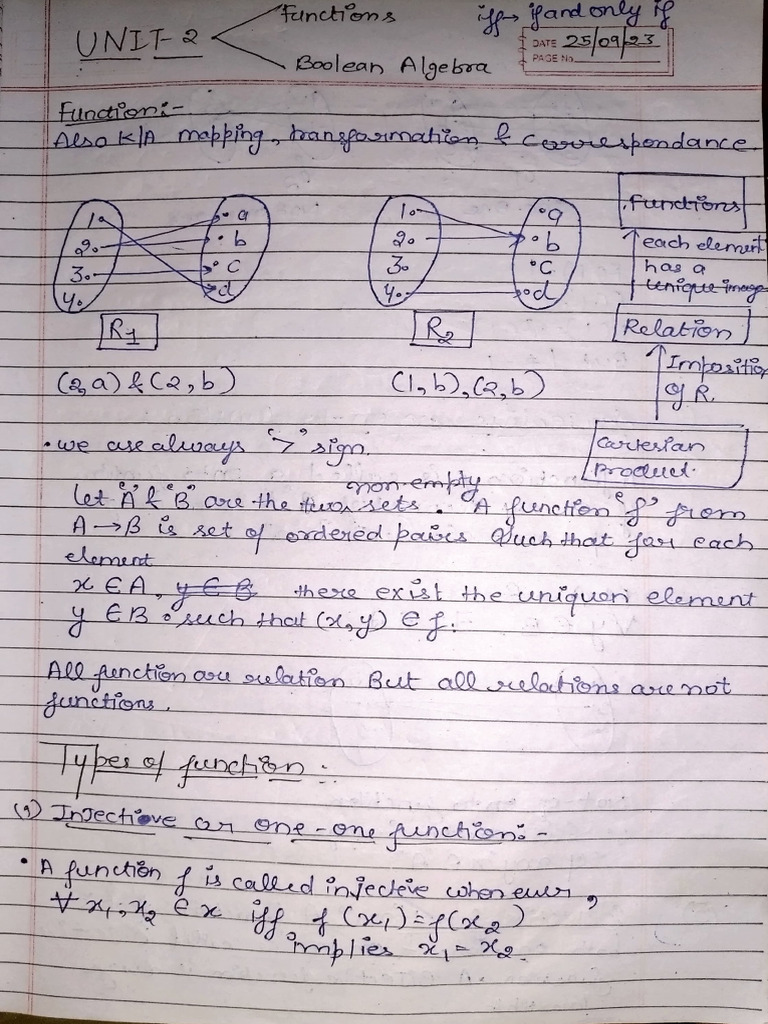 UNIT-2
Functions
Boolean Algebra
iff → if and only if
DATE 25/09/23
PAGE No.
Function:-
Also K/A mapping, transformation & correspondance.
1 2 3 4
a b c d
R1
1 2 3 4
a b c d
R2
Functions
each element
has a
unique image
Relation
Imposition
of R.
Cartesian
Product.
(2,a) & (2,b)
(1,b),(2,b)
• we are always '>' sign.
Let "A" & "B" are the two non-empty sets. A function "f" from
A→B is set of ordered pairs such that for each
element
x ∈ A, y ∈ B there exist the uniquen element
y ∈ B such that (x,y) ∈ f.
All function are relation But all relations are not
functions.
Types of function:-
(1) Injectiove or one-one function:-
• A function f is called injective when ever,
∀ x1, x2 ∈ x iff f(x1) = f(x2)
implies x1 = x2.